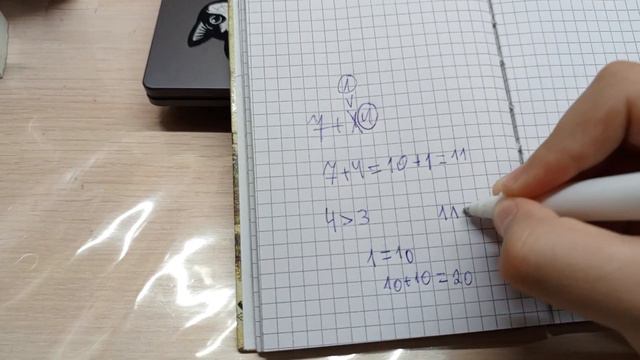 1
7+ 4
7+4=10+1=11
4>3
11
1=10
10+10=20